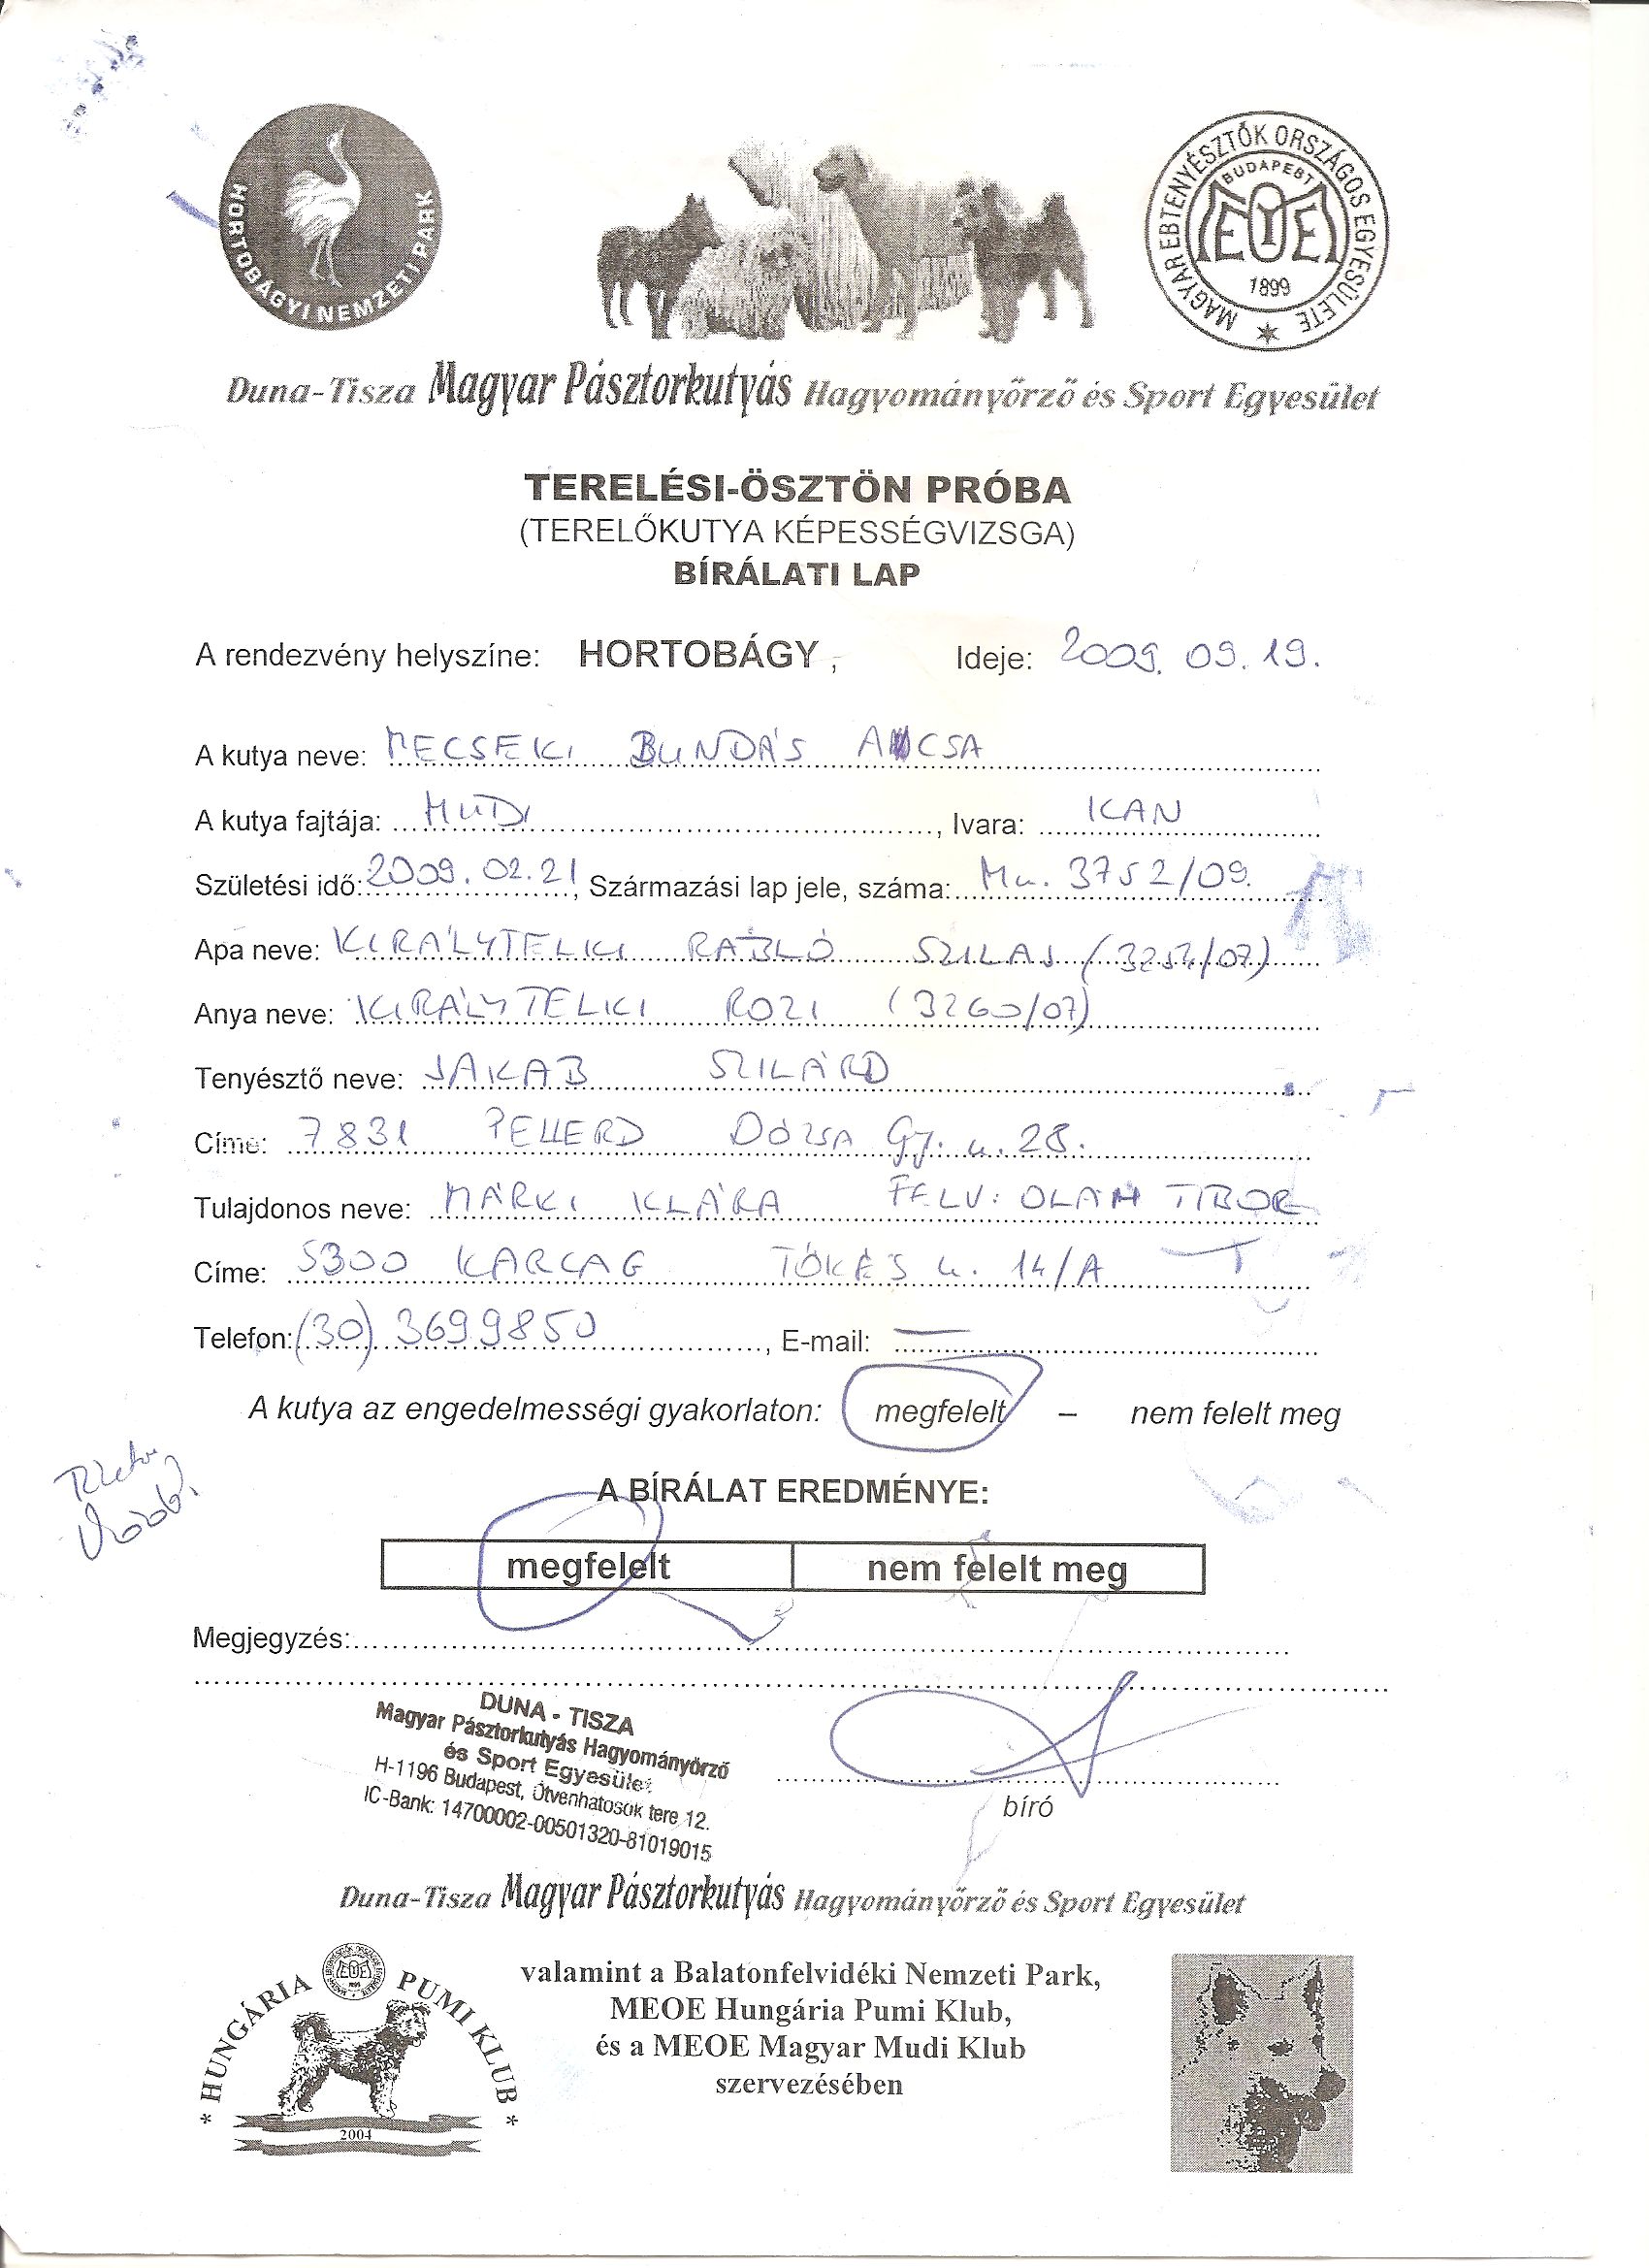 HORTOBÁGYI NEMZETI PARK
MAGYAR EBTENYÉSZTŐK ORSZÁGOS EGYESÜLETE
BUDAPEST
MEOE
1899
Duna-Tisza Magyar Pásztorkutyás Hagyományőrző és Sport Egyesület
TERELÉSI-ÖSZTÖN PRÓBA
(TERELŐKUTYA KÉPESSÉGVIZSGA)
BÍRÁLATI LAP
A rendezvény helyszíne: HORTOBÁGY, Ideje: 2009. 09. 19.
A kutya neve: MECSEKI BUNDÁS ACSA
A kutya fajtája: MUDI, Ivara: KAN
Születési idő: 2009. 02. 21, Származási lap jele, száma: Mu. 3752/09.
Apa neve: KIRÁLYTELKI RABLÓ SZILAJ (3254/07)
Anya neve: KIRÁLYTELKI ROZI (3260/07)
Tenyésztő neve: JAKAB SZILÁRD
Címe: 7831 PELLERD DÓZSA Gy. u. 28.
Tulajdonos neve: MÁRKI KLÁRA FELV: OLÁH TIBOR
Címe: 5300 KARCAG TŐKÉS u. 14/A
Telefon: (30) 3699850, E-mail: —
A kutya az engedelmességi gyakorlaton: megfelelt – nem felelt meg
A BÍRÁLAT EREDMÉNYE:
megfelelt nem felelt meg
Megjegyzés:
DUNA - TISZA
Magyar Pásztorkutyás Hagyományőrző
és Sport Egyesület
H-1196 Budapest, Ötvenhatosok tere 12.
IC-Bank: 14700002-00501320-81019015
bíró
Duna-Tisza Magyar Pásztorkutyás Hagyományőrző és Sport Egyesület
* HUNGÁRIA PUMI KLUB *
2004
valamint a Balatonfelvidéki Nemzeti Park,
MEOE Hungária Pumi Klub,
és a MEOE Magyar Mudi Klub
szervezésében